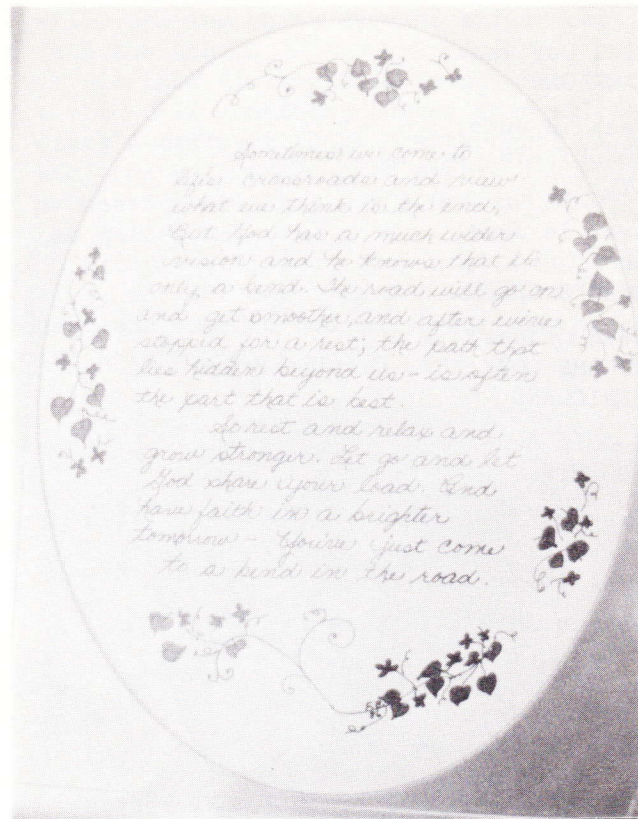 Sometimes we come to
life's crossroads and view
what we think is the end,
But God has a much wider
vision and he knows that it's
only a bend. The road will go on
and get smoother, and after we've
stopped for a rest; the path that
lies hidden beyond us - is often
the part that is best.
So rest and relax and
grow stronger. Let go and let
God share your load. And
have faith in a brighter
tomorrow - You've just come
to a bend in the road.